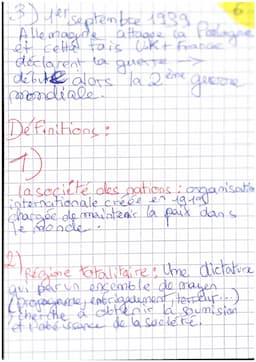 6
3) 1er septembre 1939
Allemagne attaque la Pologne
et cette fois UK + France
déclarent la guerre →
débute alors la 2ème guerre
mondiale.
Définitions :
1)
la société des nations : organisation
internationale créée en 1919
chargée de maintenir la paix dans
le monde.
2)
Régime totalitaire : Une dictature
qui par un ensemble de moyen
(Propagande, embrigadement, terreur...)
cherche à obtenir la soumision
et l'obéissance de la société.